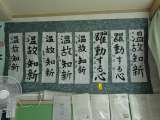 温故知新
躍動する心
温故知新
温故知新
温故知新
温故知新